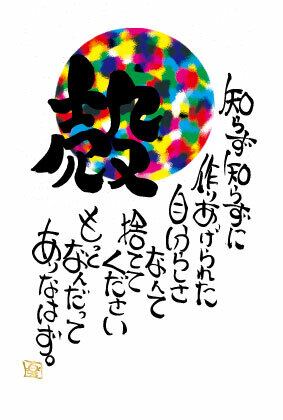 殻
知らず知らずに
作りあげられた
自分らしさ
なんて
捨てて
ください
もっと
なんだって
ありなはず。